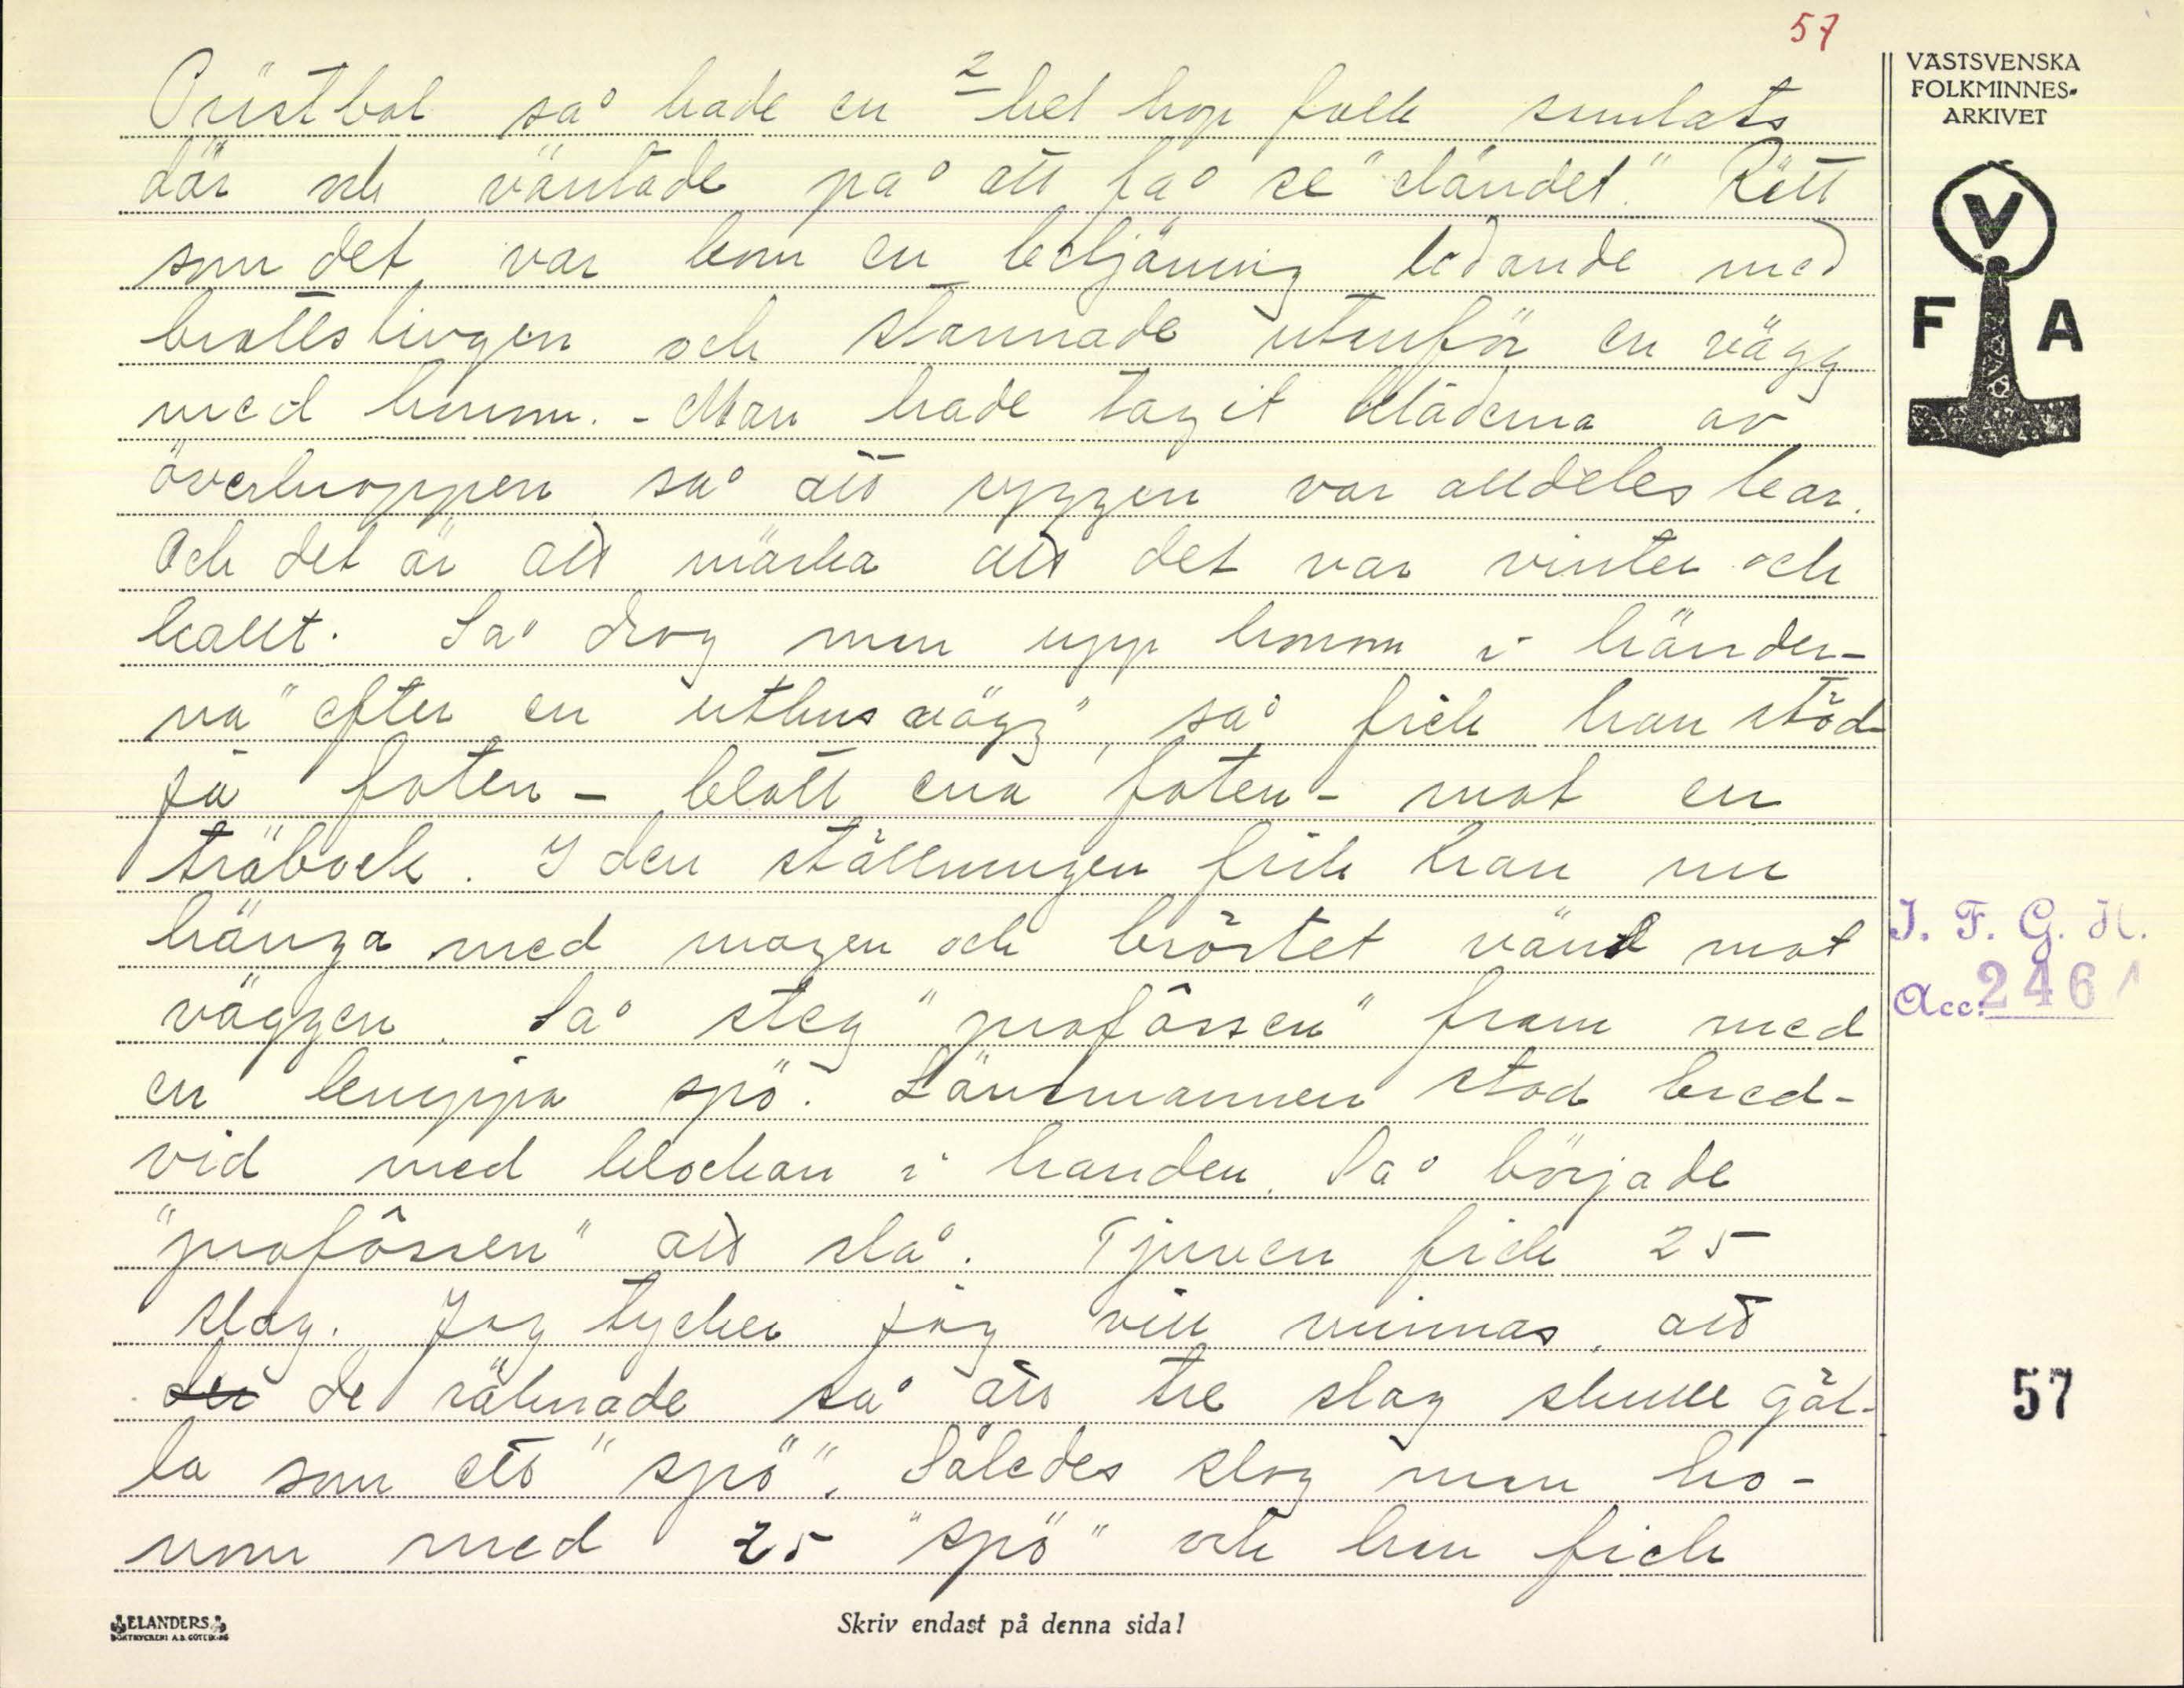 57
2
Prästbol så hade en hel hop folk samlats
där och väntade på att få se "eländet." Rätt
som det var kom en betjäning ledande med
brottslingen och stannade utanför en vägg
med honom. - Man hade tagit kläderna av
överkroppen så att ryggen var alldeles bar.
Och det är att märka att det var vinter och
kallt. Så drog man upp honom i händer-
na "efter en uthusvägg", så fick han stöd-
ja foten - blott ena foten - mot en
träbock. I den ställningen fick han nu
hänga med magen och bröstet vänd mot
väggen. Så steg "profôssen" fram med
en knippa spö. Länsmannen stod bred-
vid med klockan i handen. Så började
"profôssen" att slå. Tjuven fick 25
slag. Jag tycker jag vill minnas, att
de räknade så att tre slag skulle gäl-
la som ett "spö". Således slog man ho-
nom med 25 "spö" och han fick
VÄSTSVENSKA
FOLKMINNES-
ARKIVET
V
F A
I. F. G. H.
Acc. 2461
57
ELANDERS
BOKTRYCKERI A.B. GÖTEBORG
Skriv endast på denna sida!